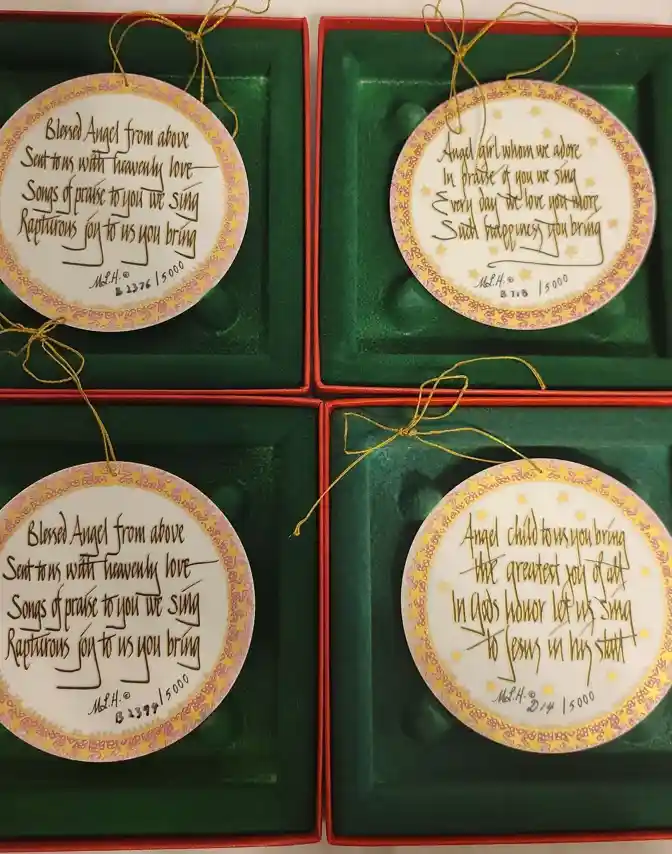 Blessed Angel from above
Sent to us with heavenly love
Songs of praise to you we sing
Rapturous joy to us you bring
M.L.H. ©
B 2376 / 5000
Angel girl whom we adore
In praise of you we sing
Every day we love you more
Such happiness you bring
M.L.H. ©
B 718 / 5000
Blessed Angel from above
Sent to us with heavenly love
Songs of praise to you we sing
Rapturous joy to us you bring
M.L.H. ©
B 2399 / 5000
Angel child to us you bring
the greatest joy of all
In Gods honor let us sing
to Jesus in his stall
M.L.H. ©
D14 / 5000